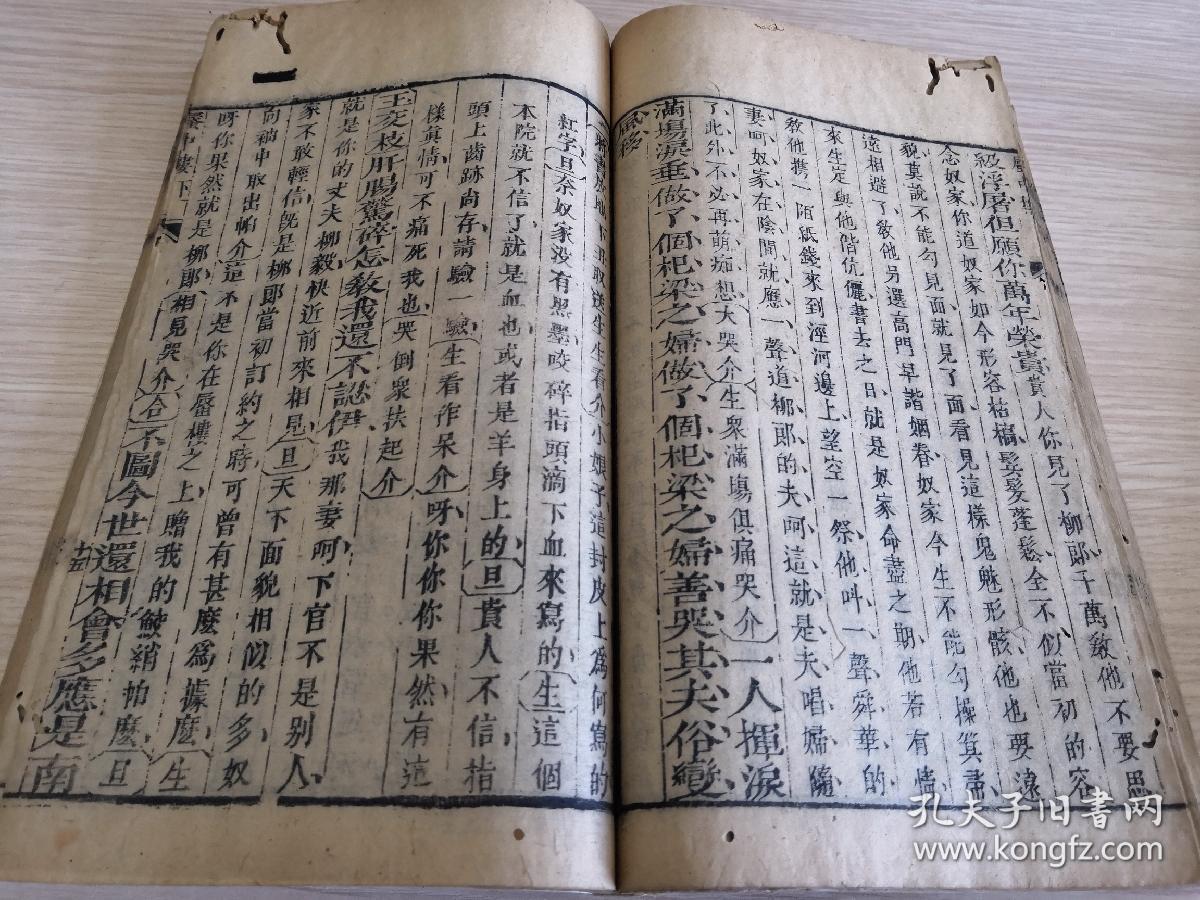 級浮屠但願你萬年榮貴貴人你見了柳郎千萬教他不要思
念奴家你道奴家如今形容枯槁髮鬢蓬鬆全不似當初的容
貌莫說不能勾見面就見了面看見這樣鬼魅形骸他也要遠
遠相避了教他另選高門早諧姻眷奴家今生不能勾操箕帚
來生定與他偕伉儷書去之日就是奴家命盡之期他若有情
教他携一陌紙錢來到涇河邊上望空一祭他叫一聲舜華的
妻呵奴家在陰間就應一聲道柳郎的夫呵這就是夫唱婦隨
了此外不必再萌痴想大哭介生衆滿塲俱痛哭介一人揮淚
滿塲淚垂做了個杞梁之婦做了個杞梁之婦善哭其夫俗變
風移
生看介小娘子這封皮上爲何寫的
紅字旦奈奴家没有黑墨咬碎指頭滴下血來寫的生這個
本院就不信了就是血也或者是羊身上的旦貴人不信指
頭上齒跡尚存請驗一驗生看作呆介呀你你你果然有這
樣真情可不痛死我也哭倒衆扶起介
玉交枝肝腸驚碎怎教我還不認伊我那妻呵下官不是别人
就是你的丈夫柳毅快近前來相見旦天下面貌相似的多奴
家不敢輕信旣是柳郎當初訂約之時可曾有甚麽爲據麽生
向袖中取出帕介這不是你在蜃樓之上贈我的鮫綃帕麽旦
呀你果然就是柳郎相見哭介合不圖今世還相會多多應是南
蜃中樓下
孔夫子旧书网
www.kongfz.com